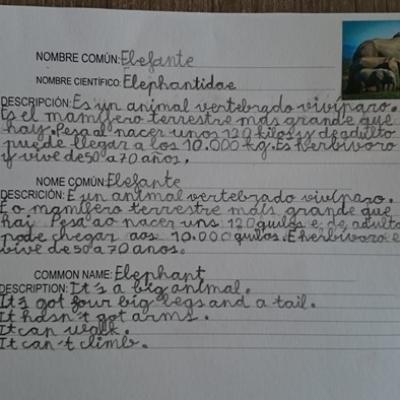 NOMBRE COMÚN: Elefante
NOMBRE CIENTÍFICO: Elephantidae
DESCRIPCIÓN: Es un animal vertebrado vivíparo.
Es el mamífero terrestre más grande que
hay. Pesa al nacer unos 120 kilos y de adulto
puede llegar a los 10.000 kg. Es herbívoro
y vive de 50 a 70 años.
NOME COMÚN: Elefante
DESCRICIÓN: É un animal vertebrado vivíparo.
É o mamífero terrestre máis grande que
hai. Pesa ao nacer uns 120 quilos e de adulto
pode chegar aos 10.000 quilos. É herbívoro e
vive de 50 a 70 anos.
COMMON NAME: Elephant
DESCRIPTION: It's a big animal.
It's got four big legs and a tail.
It hasn't got arms.
It can walk.
It can't climb.